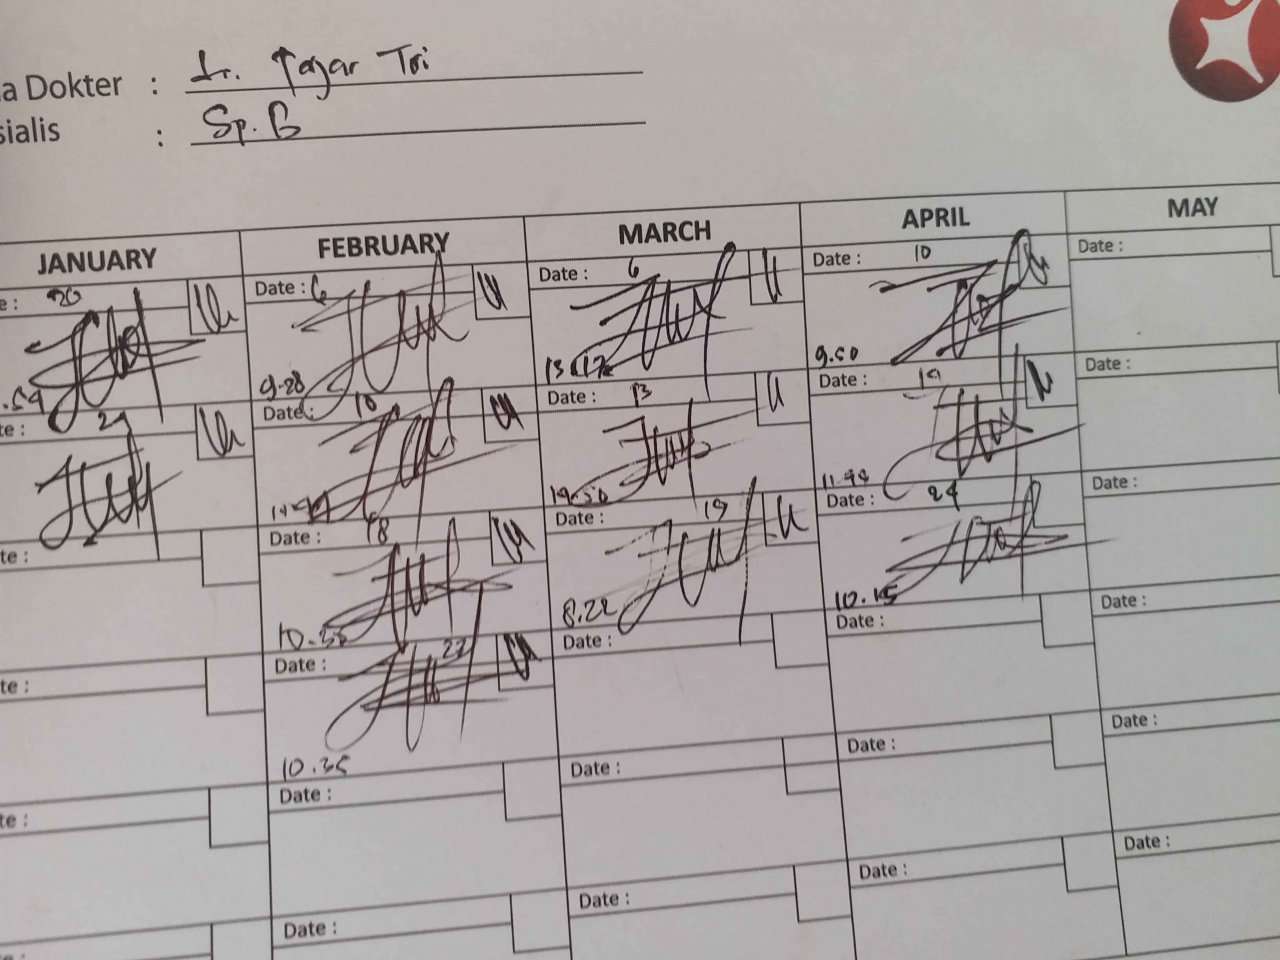 a Dokter : dr. Fajar Tri
sialis : Sp. B
JANUARY FEBRUARY MARCH APRIL MAY
e : 20 Date : 6 Date : 6 Date : 10 Date :
.54 9.28 9.50
te : 29 Date : 10 Date : 13 Date : 19 Date :
te : Date : 18 Date : 19 Date : 24 Date :
8.22 10.15
te : Date : 27 Date : Date : Date :
10.35
te : Date : Date : Date : Date :
Date : Date : Date : Date :